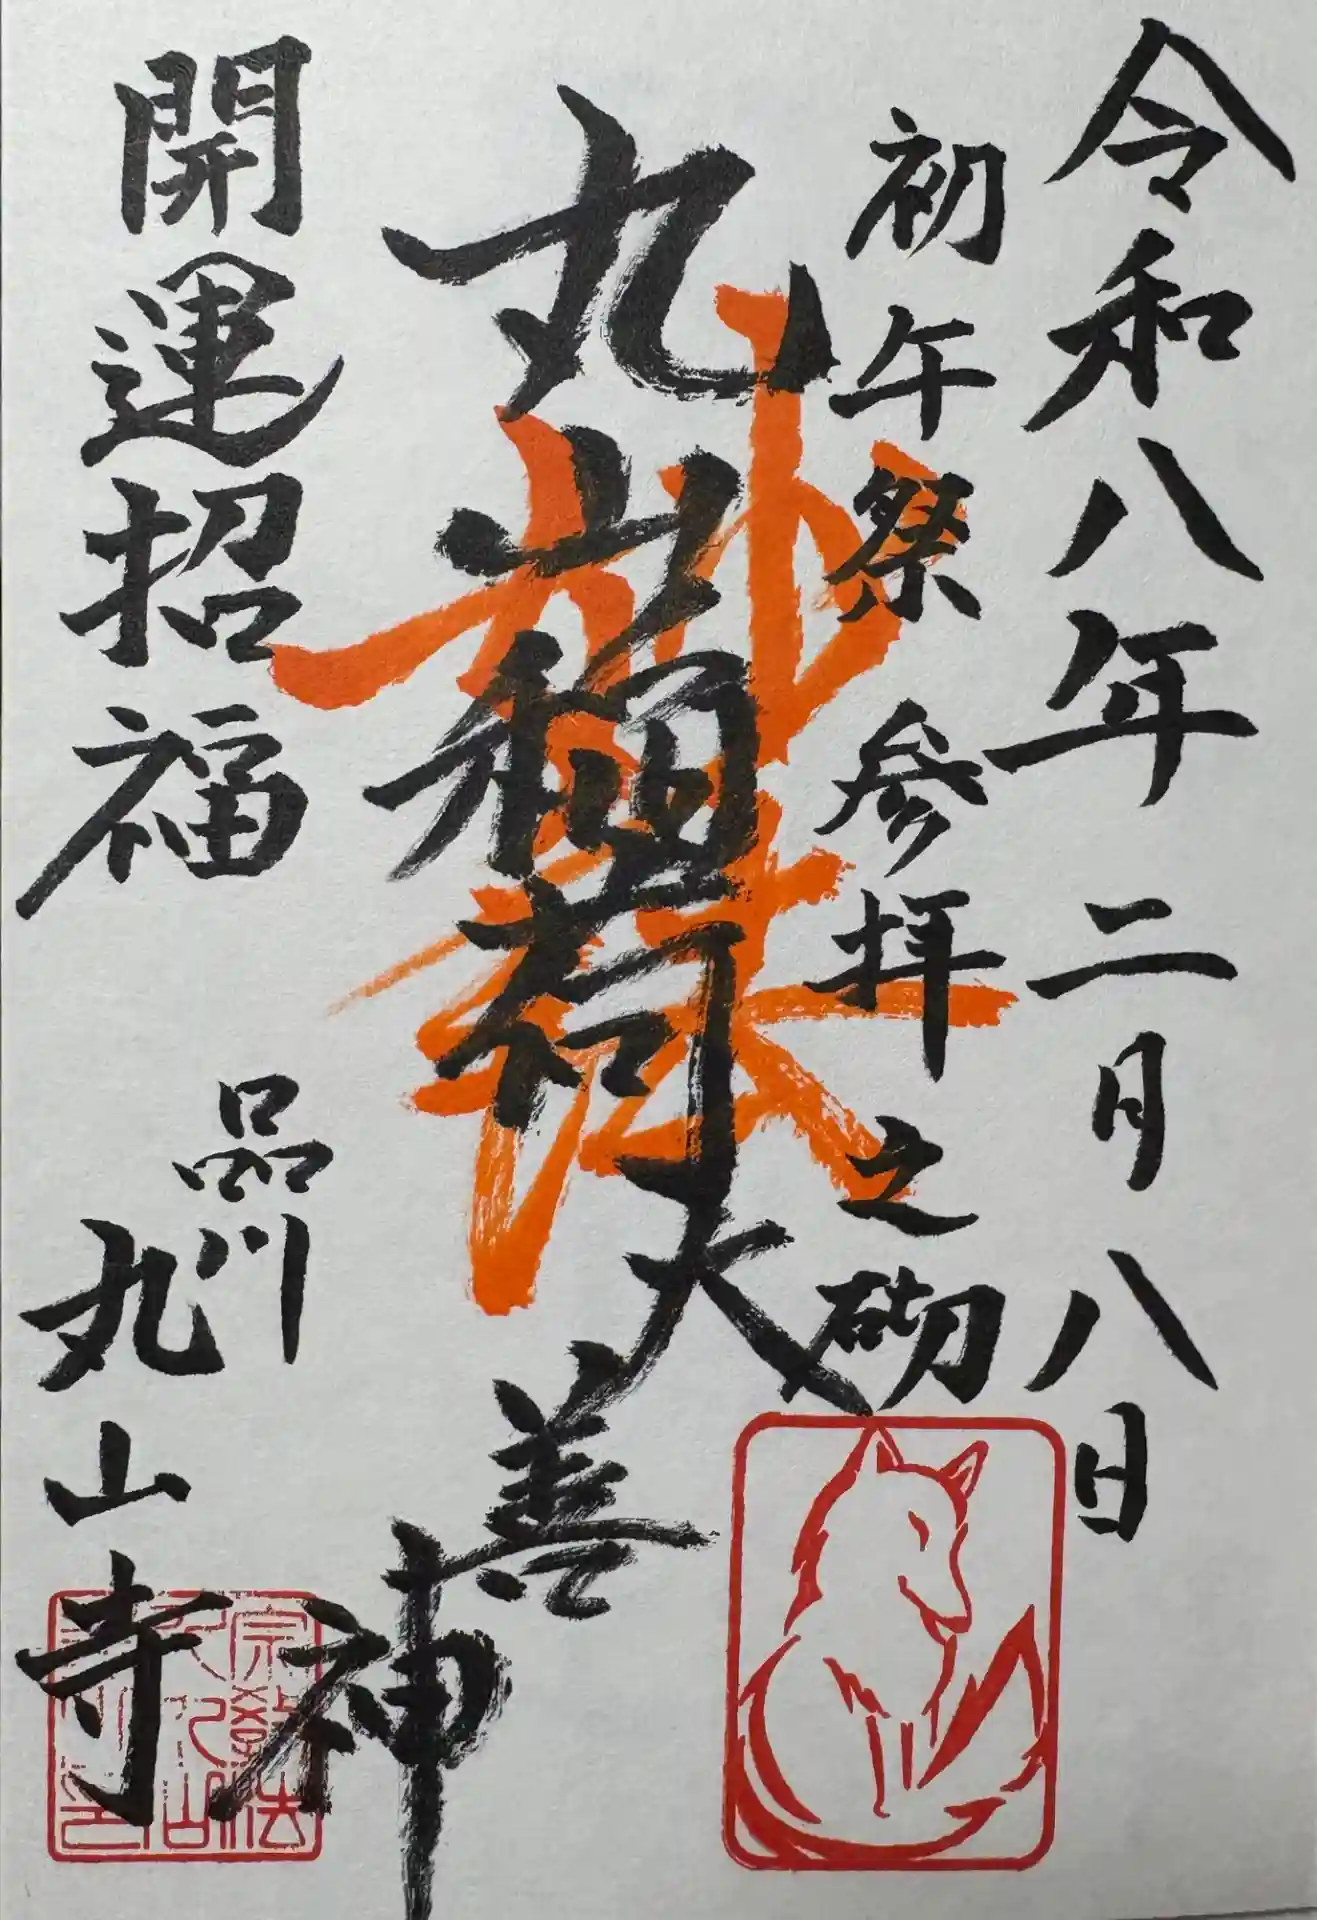 令和八年二月八日
初午祭参拝之砌
丸山稲荷大善神
開運招福
品川
丸山寺
宗教法
人丸山